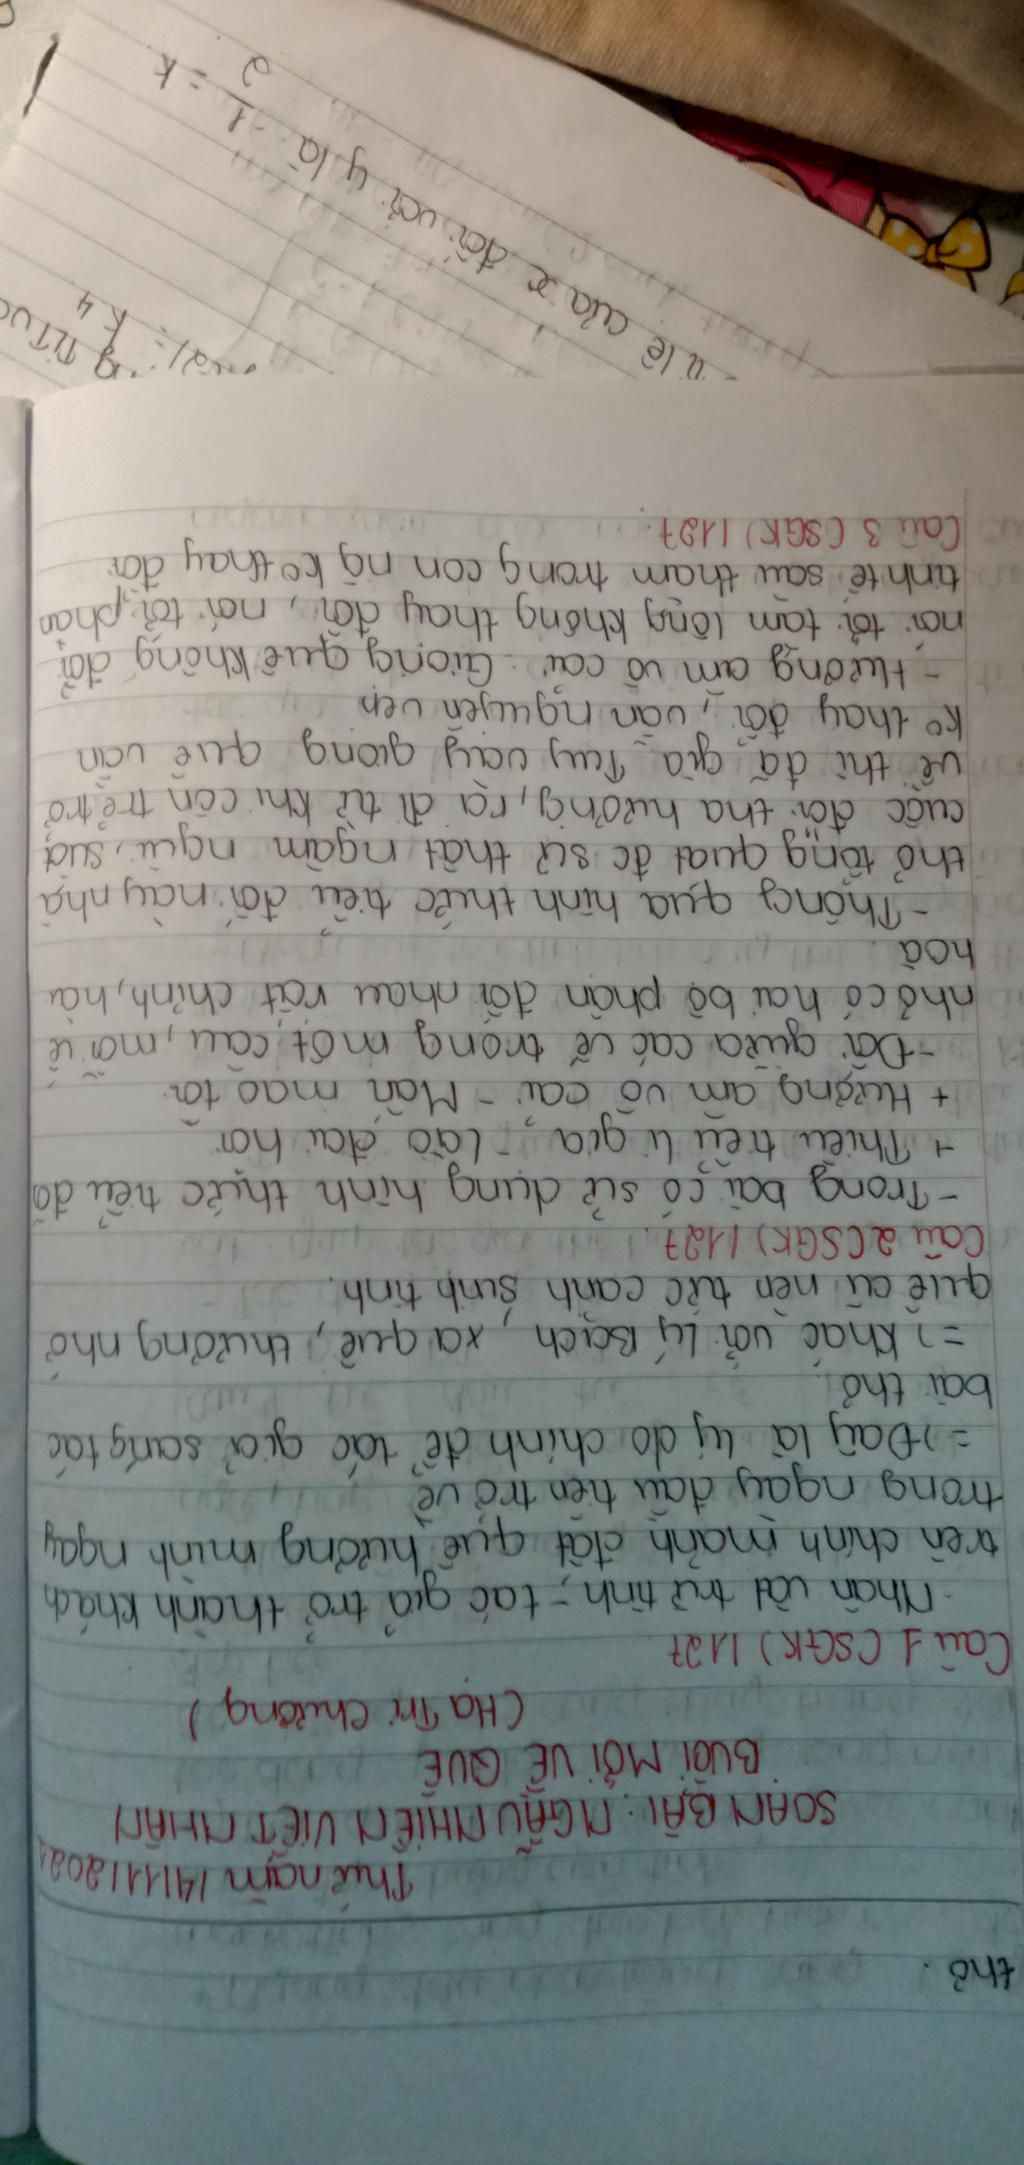 thơ.
Thứ năm 14/11/202
SOẠN BÀI: NGẪU NHIÊN VIẾT NHÂN
BUỔI MỚI VỀ QUÊ
(Hạ Tri Chương)
Câu 1 (SGK) / 127
- Nhân vật trữ tình - tác giả trở thành khách
trên chính mảnh đất quê hương mình ngay
trong ngày đầu tiên trở về
=> Đây là lý do chính để tác giả sáng tác
bài thơ.
=> Khác với Lý Bạch, xa quê, thương nhớ
quê cũ nên tức cảnh sinh tình.
Câu 2 (SGK) / 127.
- Trong bài có sử dụng hình thức tiểu đối
+ Thiếu tiểu li gia - Lão đại hồi
+ Hương âm vô cải - Mấn mao tồi
- Đối giữa các vế trong một câu, mỗi vế
nhỏ có hai bộ phận đối nhau rất chỉnh, hài
hoà.
- Thông qua hình thức tiểu đối này nhà
thơ tổng quát đc sự thật ngậm ngùi, suốt
cuộc đời tha hương, ra đi từ khi còn trẻ trở
về thì đã già. Tuy vậy giọng quê vẫn
ko thay đổi, vẫn nguyên vẹn
- Hương âm vô cải: Giọng quê không đổi
nói tới tấm lòng không thay đổi, nói tới phần
tinh tế, sâu thẳm trong con ng ko thay đổi
Câu 3 (SGK) / 127.
ỉ lệ của x đối với y là -1/2 = k
k/4
TLT